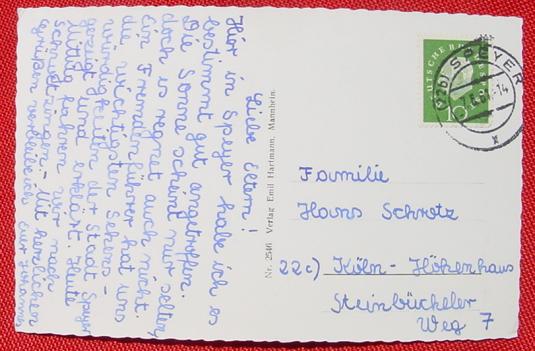 Liebe Eltern!
Hier in Speyer habe ich es
bestimmt gut angetroffen.
Die Sonne scheint nur selten,
doch es regnet auch nicht.
Ein Fremdenführer hat uns
die wichtigsten Sehens-
würdigkeiten der Stadt Speyer
gezeigt und erklärt. Heute
Mittag fahren wir nach
Schwetzingen. Mit herzlichen
Grüßen verbleibe ich
Eur
Nr. 2546 Verlag Emil Hartmann, Mannheim.
DEUTSCHE BUNDESPOST
10
(22b) SPEYER
-14
Familie
Hans Schrotz
22c) Köln-Höhenhaus
Steinbücheler
Weg 7